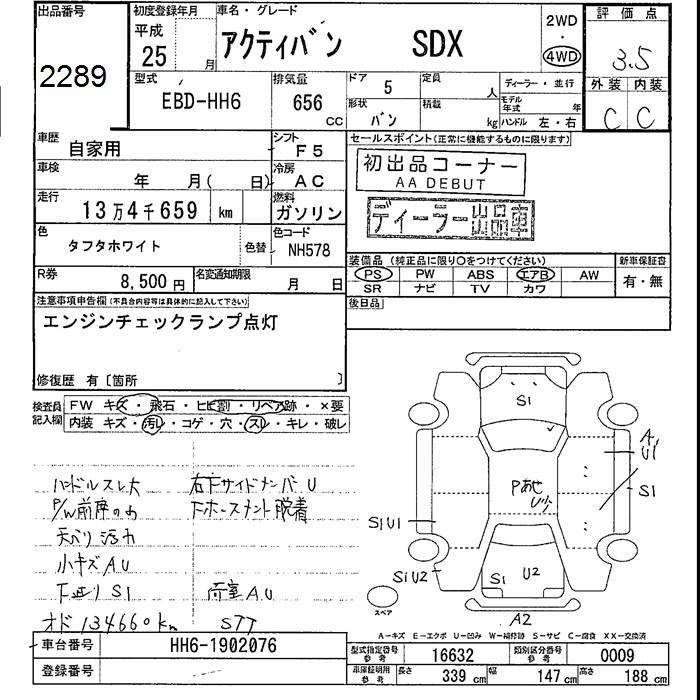 出品番号
2289
初度登録年月
平成
25 月
車名・グレード
アクティバン SDX
2WD
・
4WD
評価点
3.5
外装 内装
C C
型式
EBD-HH6
排気量
656
CC
ドア
5
定員
人
形状
バン
積載
kg
ディーラー・並行
モデル年式 年
ハンドル 左・右
車歴
自家用
シフト
F5
車検
年 月( 日)
冷房
AC
走行
13万4千659 km
燃料
ガソリン
色
タフタホワイト
色替
色コード
NH578
R券
8,500円
名変通知期限
月 日
セールスポイント(正常に機能するものに限ります)
初出品コーナー
AA DEBUT
ディーラー出品車
装備品 (純正品に限り○をつけてください)
PS PW ABS エアB AW
SR ナビ TV カワ
新車保証書
有・無
後日品
注意事項申告欄(不具合内容等は具体的に記入して下さい)
エンジンチェックランプ点灯
修復歴 有〔箇所 〕
検査員記入欄
FW キズ・飛石・ヒビ割・リペア跡・×要
内装 キズ・汚レ・コゲ・穴・スレ・キレ・破レ
ハンドルスレ大
P/W前席のわ
天バリ汚れ
小キズAU
下廻りS1
オド134660km
右下サイドナンバーU
下ホースメント脱着
荷室AU
STT
S1
Pあせ
U少
A1
U1
S1
S1U1
S1U2
S1
U2
A2
スペア
A-キズ E-エクボ U-凹み W-補修跡 S-サビ C-腐食 XX-交換済
車台番号
HH6-1902076
登録番号
型式指定番号
参考
16632
類別区分番号
参考
0009
車庫証明用
参考
長さ
339 cm
幅
147 cm
高さ
188 cm